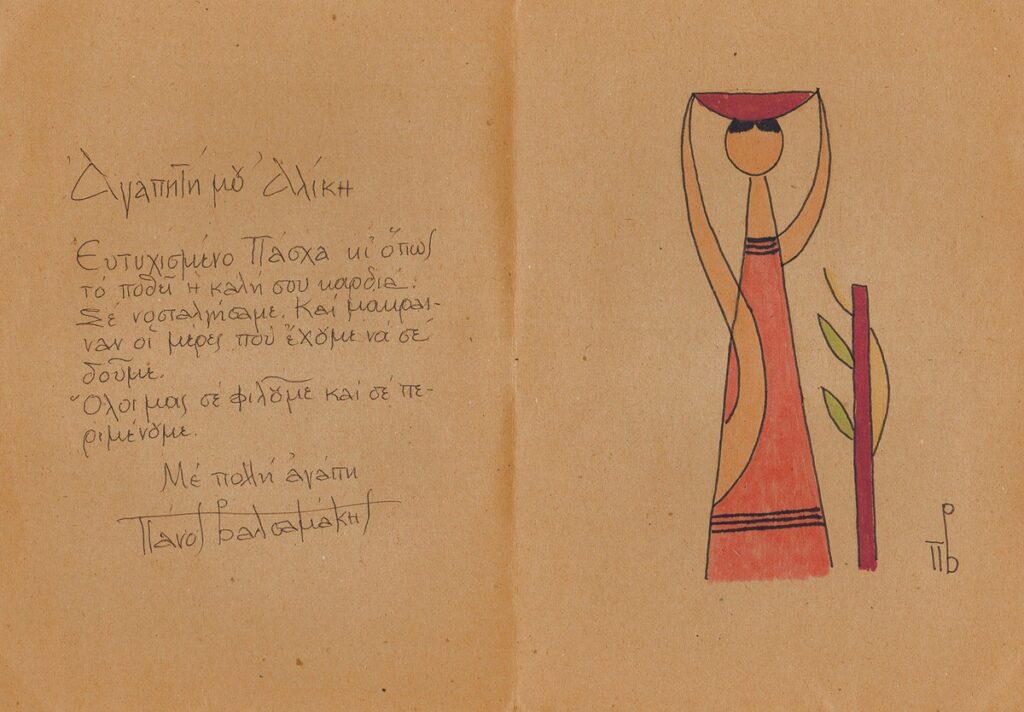 Ἀγαπητή μου Ἀλίκη
Εὐτυχισμένο Πάσχα κι' ὅπως
τό ποθεῖ ἡ καλή σου καρδιά.
Σέ νοσταλγήσαμε. Καί μακραί-
ναν οἱ μέρες πού ἔχουμε νά σέ
δοῦμε.
Ὅλοι μας σέ φιλοῦμε καί σέ πε-
ριμένουμε.
Μέ πολλή ἀγάπη
Πάνος Βαλσαμάκης
ΠΒ